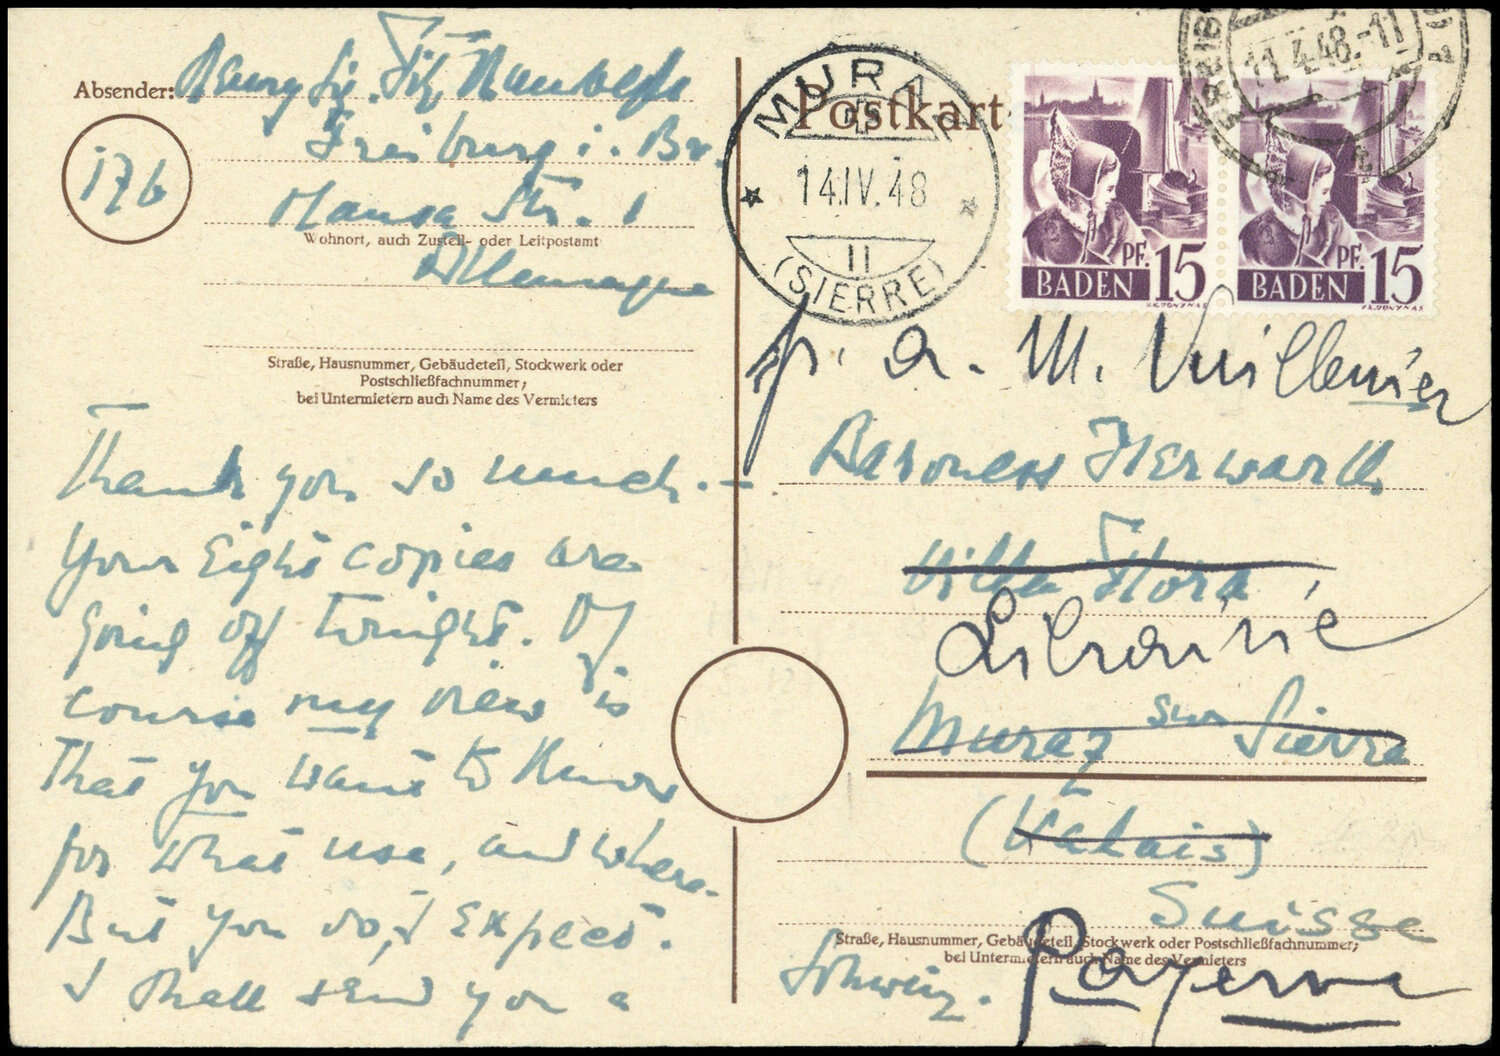 Absender:
Freiburg i. Br.
17b
Hansa Str. 1
Wohnort, auch Zustell- oder Leitpostamt
Allemagne
Straße, Hausnummer, Gebäudeteil, Stockwerk oder
Postschließfachnummer;
bei Untermietern auch Name des Vermieters
Thank you so much. —
Your eight copies are
going off tonight. Of
course my view is
that you want to know
for what use, and where.
But you do, I expect.
I shall send you a
Postkart
MURAZ
14.IV.48
II
(SIERRE)
11.4.48.-11
PF. 15
BADEN
PF. 15
BADEN
p. a. M. Vuillemier
Baroness Herwarth
Villa Flora
Librairie
Muraz sur Sierre
(Valais)
Suisse
Straße, Hausnummer, Gebäudeteil, Stockwerk oder Postschließfachnummer;
bei Untermietern auch Name des Vermieters
Schweiz.
Payerne